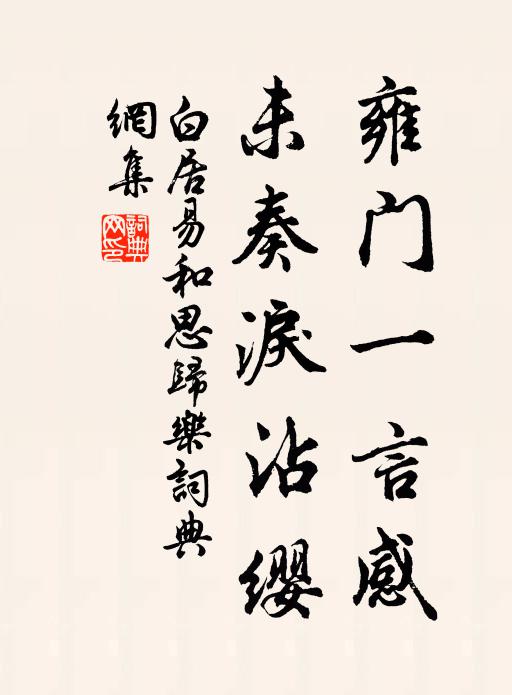 雍门一言感
未奏淚沾缨
白居易和思歸樂詞典
網集
詞典
网印